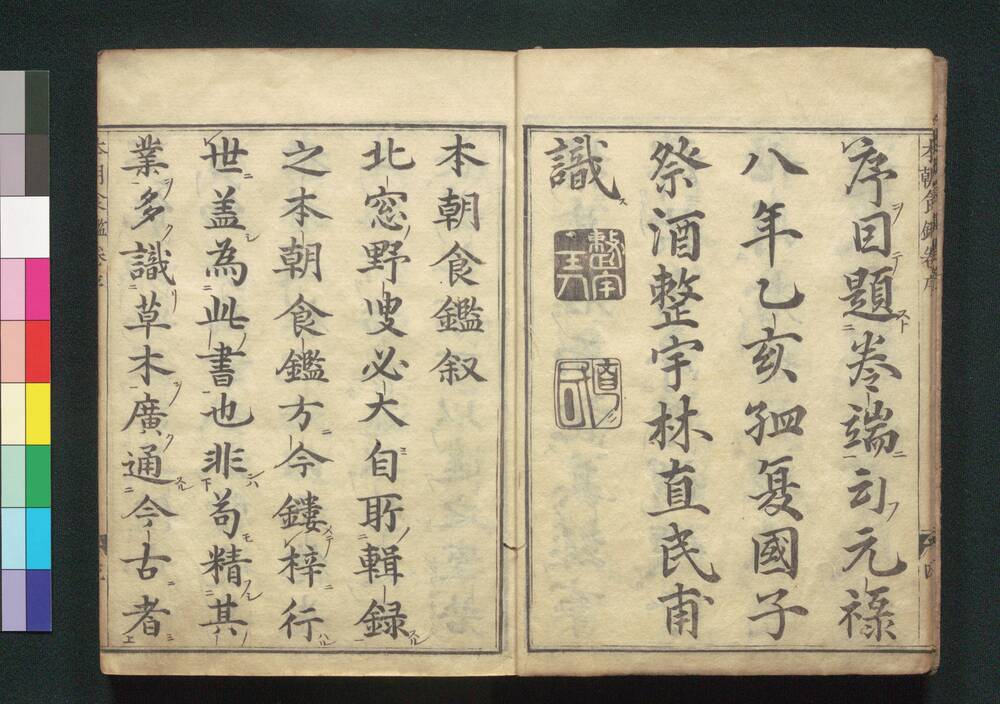 序因題卷端云元祿
八年乙亥孟夏國子
祭酒整宇林直民甫
識
整宇
本朝食鑑叙
北窓野叟必大自所輯録
之本朝食鑑方今鏤梓行
世盖為此書也非苟精其
業多識草木廣通今古者